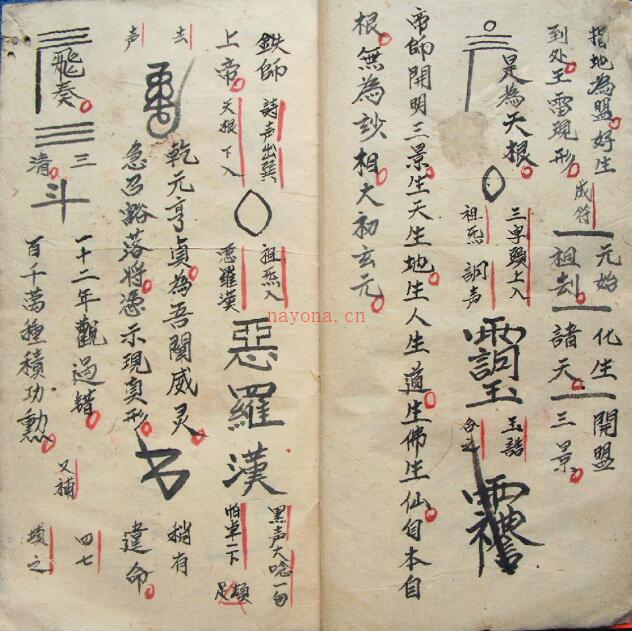 指地為盟好生
到处王雷現形
成符
元始
祖炁
化生
諸天
開盟
三景
是為天根
三字頭上入
祖炁
詞声
玉誥
合之
帝師開明三景生天生地生人生道生佛生仙自本自
根無為妙相大初玄元
鉄師
詩声出巽
祖炁入
黑声大唸一句
上帝
天根下入
惡羅漢
拍卓一下
惡羅漢
乾元亨貞為吾闡威灵
稍有
去
声
急召豁落將憑示現真形
違命
飛奏
三
清
斗
一十二年觀過錯
又補
四七
百千萬種積功勲
nayona.cn